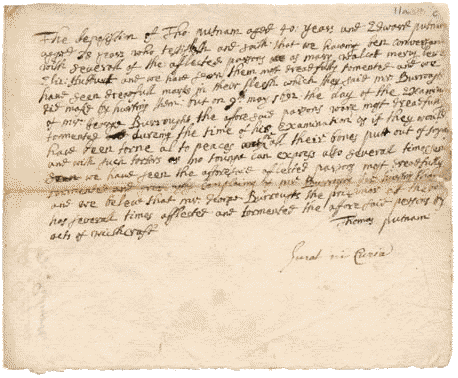 The deposistion of Tho: putnam aged 40: years and Edward putnam
aged 38 years who testifieth and saith that we haveing ben conversant
with severall of the afflected parsons as mary walcott mercy lewes
Eliz: Hubburt and we have seen them most dreadfully tormented and we
have seen dreadfull marks in their fleesh which they said mr Burroughs
did make by hurting them: but on 9th may 1692 the day of the Examin
of mr George Burroughs the afforesaid parsons ware most dreadfully
tormented dureing the time of his Examination as if they would
have been torne al to peaces all their bones putt out of joynt
and with such tortors as no tounge can express also severall times
we have seen the afforesaid afflected parsons most dreadfully
tormented and complaining of mr Burroughs for hurting them
and we beleve that mr George Burroughs the prizoner at the barr
has severall times afflected and tormented the afforesaid persons by
acts of wicthcraft
Thomas putnam
Jurat in Curia